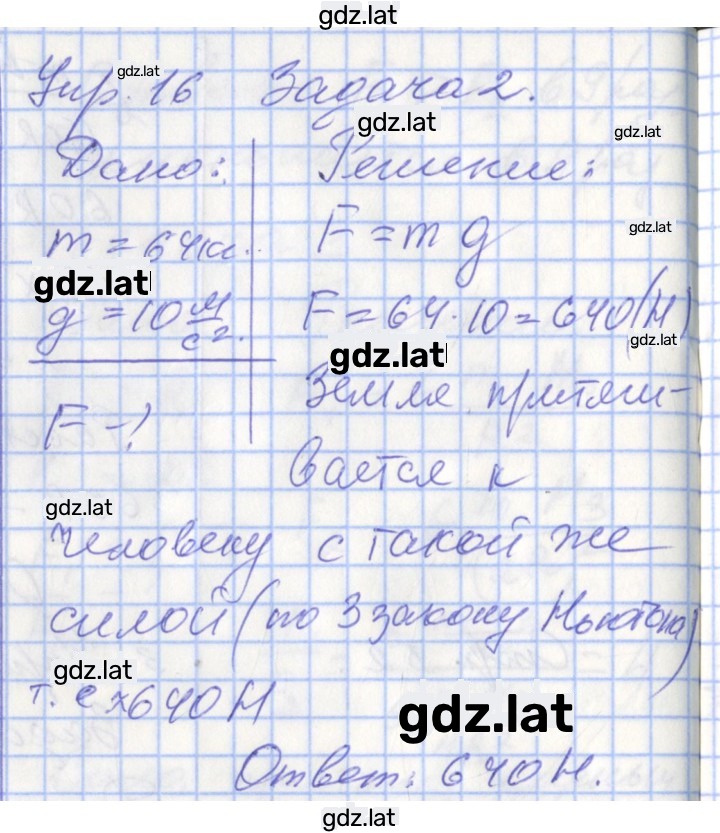 gdz.lat
gdz.lat
Упр. 16 Задача 2.
gdz.lat
gdz.lat
Дано: Решение:
m = 64 кг. F = m g
gdz.lat
gdz.lat
g = 10 м/с². F = 64 · 10 = 640 (Н)
gdz.lat
gdz.lat
F - ? Земля притяги-
вается к
gdz.lat
человеку с такой же
силой (по 3 закону Ньютона)
gdz.lat
т. е 640 Н
gdz.lat
Ответ: 640 Н.
gdz.lat